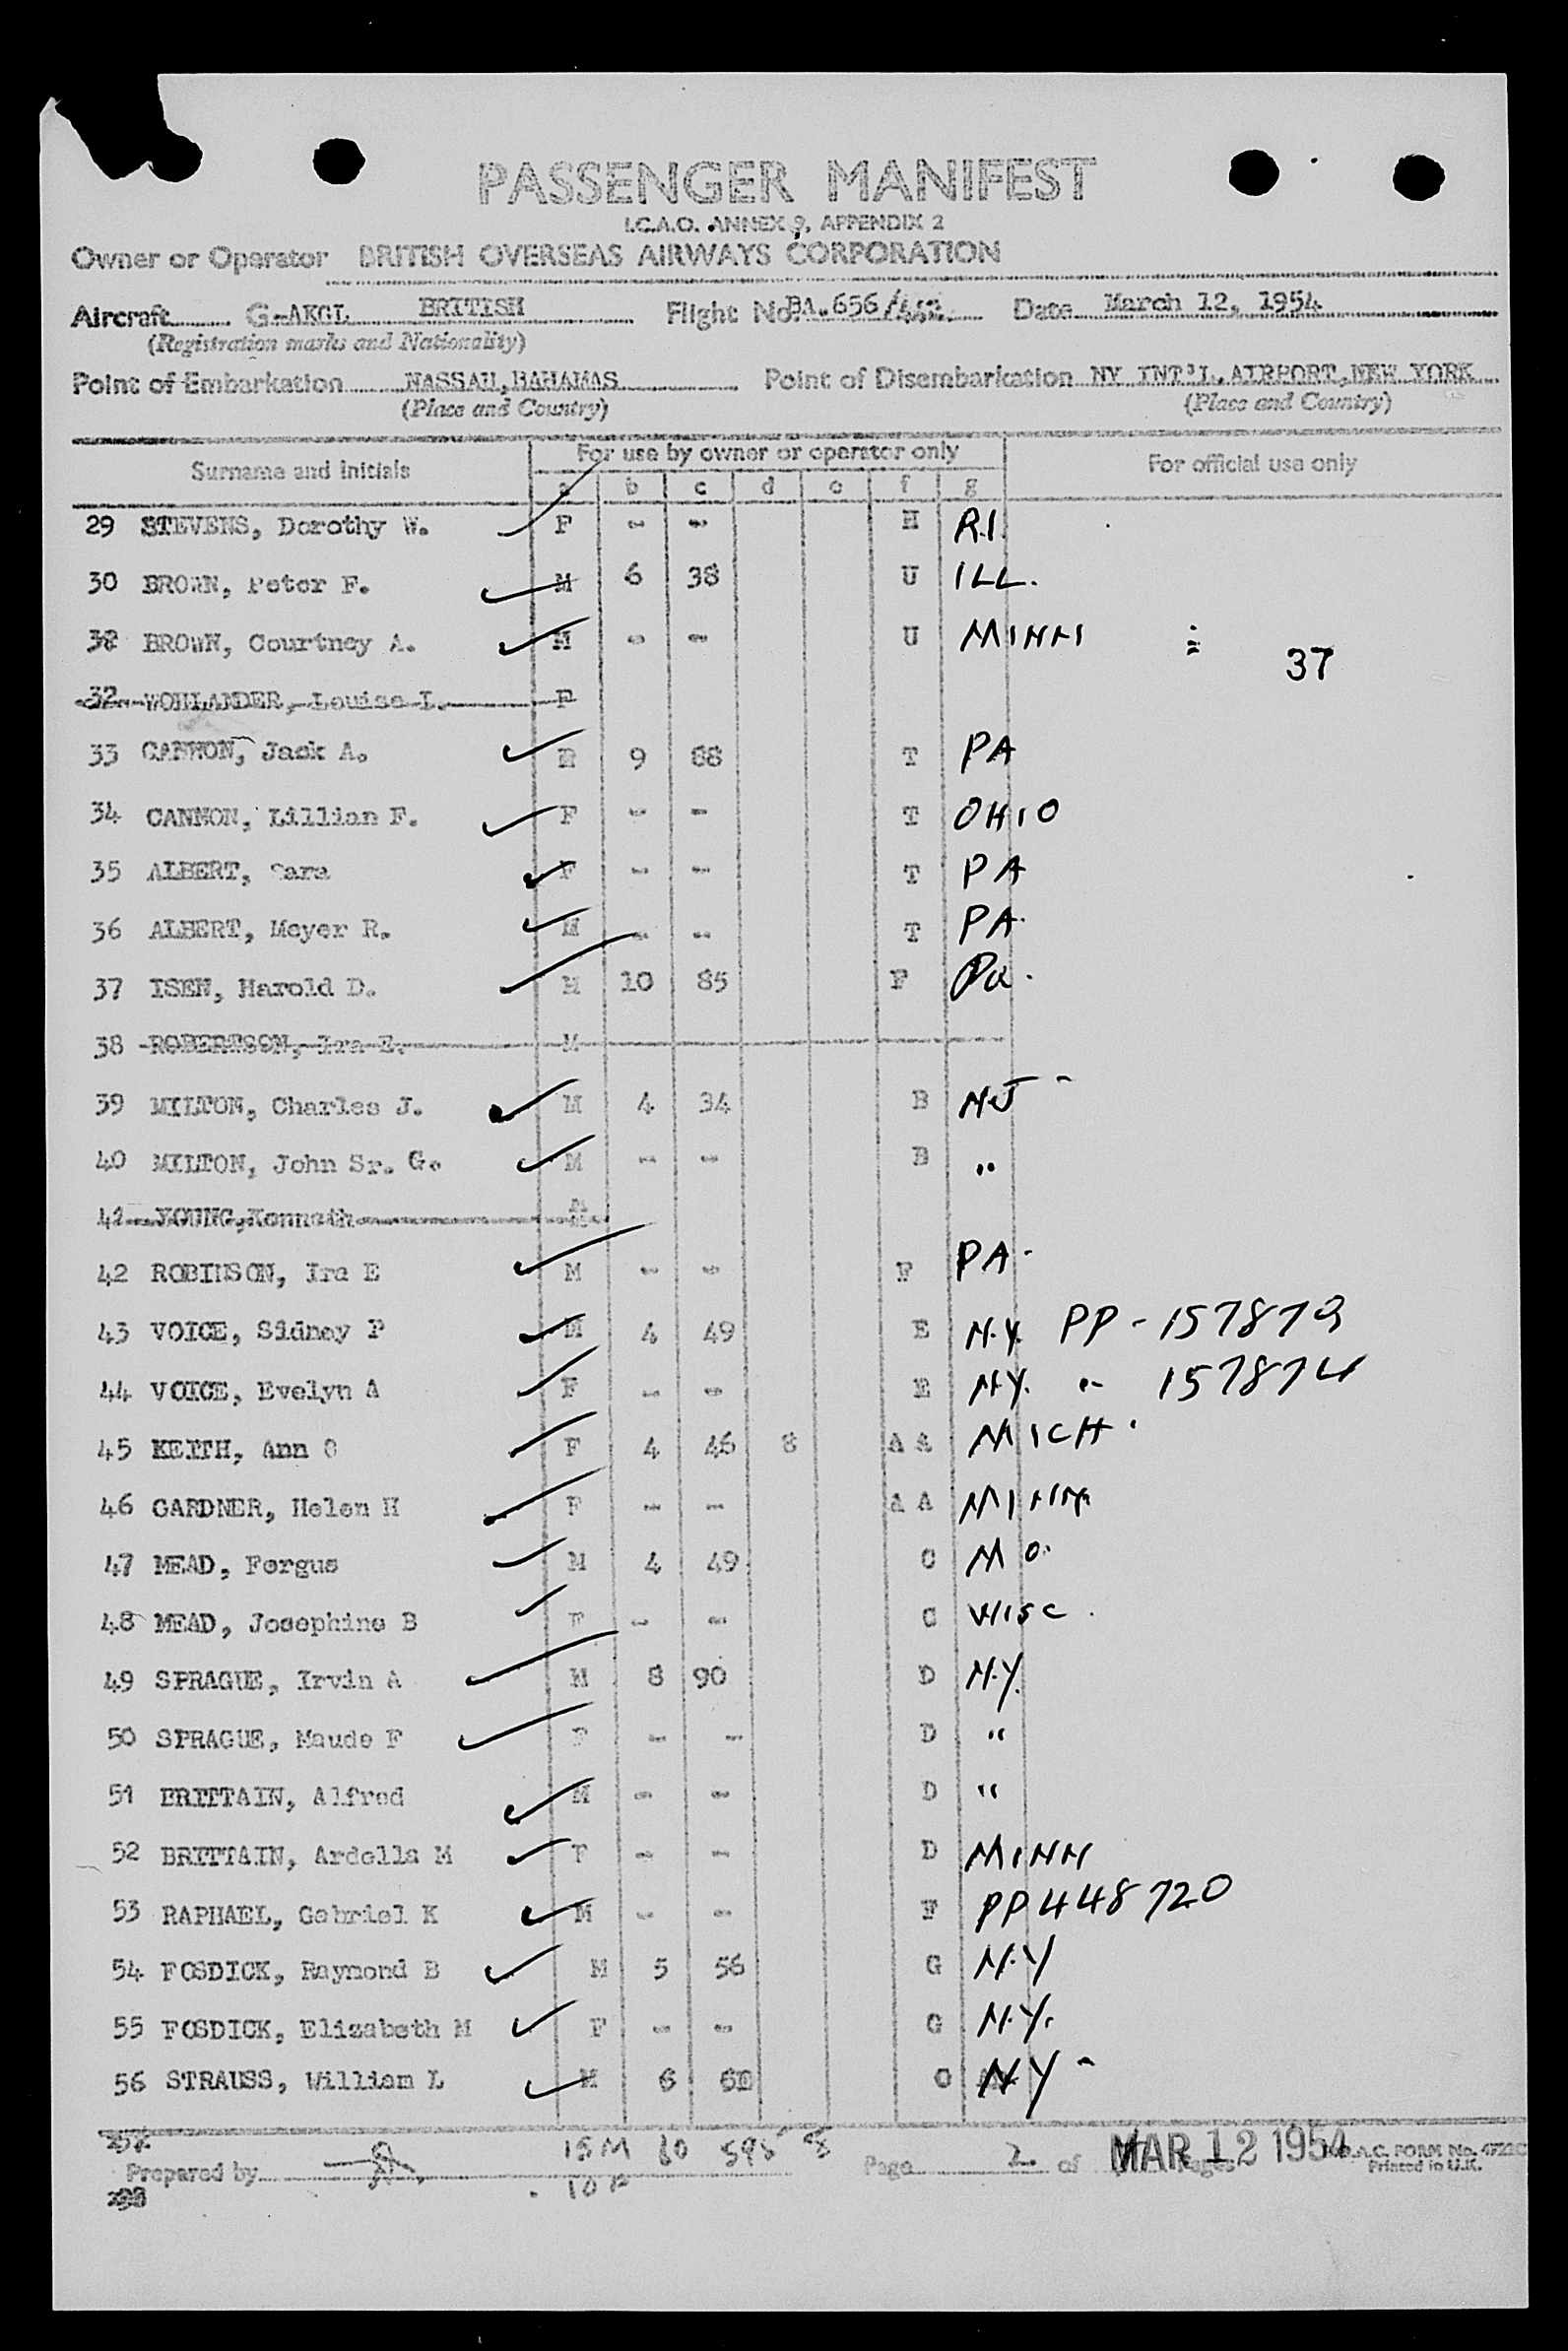 PASSENGER MANIFEST
I.C.A.O. ANNEX 9, APPENDIX 2
Owner or Operator BRITISH OVERSEAS AIRWAYS CORPORATION
Aircraft G-AKGL BRITISH Flight No. BA.656/ Date March 12, 1954
(Registration marks and Nationality)
Point of Embarkation NASSAU, BAHAMAS Point of Disembarkation NY INT'L. AIRPORT, NEW YORK
(Place and Country) (Place and Country)
For use by owner or operator only
Surname and initials For official use only
a b c d e f g
29 STEVENS, Dorothy W. F - - H R.I.
30 BROWN, Peter F. M 6 38 U ILL.
BROWN, Courtney A. M - - U MINN
37
32 WOHLANDER, Louise I. F
33 CANNON, Jack A. M 9 88 T PA
34 CANNON, Lillian F. F - - T OHIO
35 ALBERT, Sara F - - T PA
36 ALBERT, Meyer R. M - - T PA.
37 ISEN, Harold D. M 10 85 F Pa.
38 ROBERTSON, Ira E. M
39 MILTON, Charles J. M 4 34 B NJ -
40 MILTON, John Sr. G. M - - B "
YOUNG, Kenneth
42 ROBINSON, Ira E M - - F PA-
43 VOICE, Sidney P M 4 49 E N.Y. PP - 157873
44 VOICE, Evelyn A F - - E N.Y. " 157874
45 KEITH, Ann S F 4 46 8 A A MICH.
46 GARDNER, Helen H F - - A A MINN
47 MEAD, Fergus M 4 49 C MO.
48 MEAD, Josephine B F - - C WISC.
49 SPRAGUE, Irvin A M 8 90 D N.Y.
50 SPRAGUE, Maude F F - - D "
51 BRITTAIN, Alfred M - - D "
52 BRITTAIN, Ardella M F - - D MINN
53 RAPHAEL, Gabriel K M - - F PP 448720
54 FOSDICK, Raymond B M 5 56 G N.Y
55 FOSDICK, Elizabeth M F - - G N.Y.
56 STRAUSS, William L M 6 O NY -
15M 60 595 8
Prepared by Page 2 of MAR 12 1954 FORM No.
10F Printed in U.K.